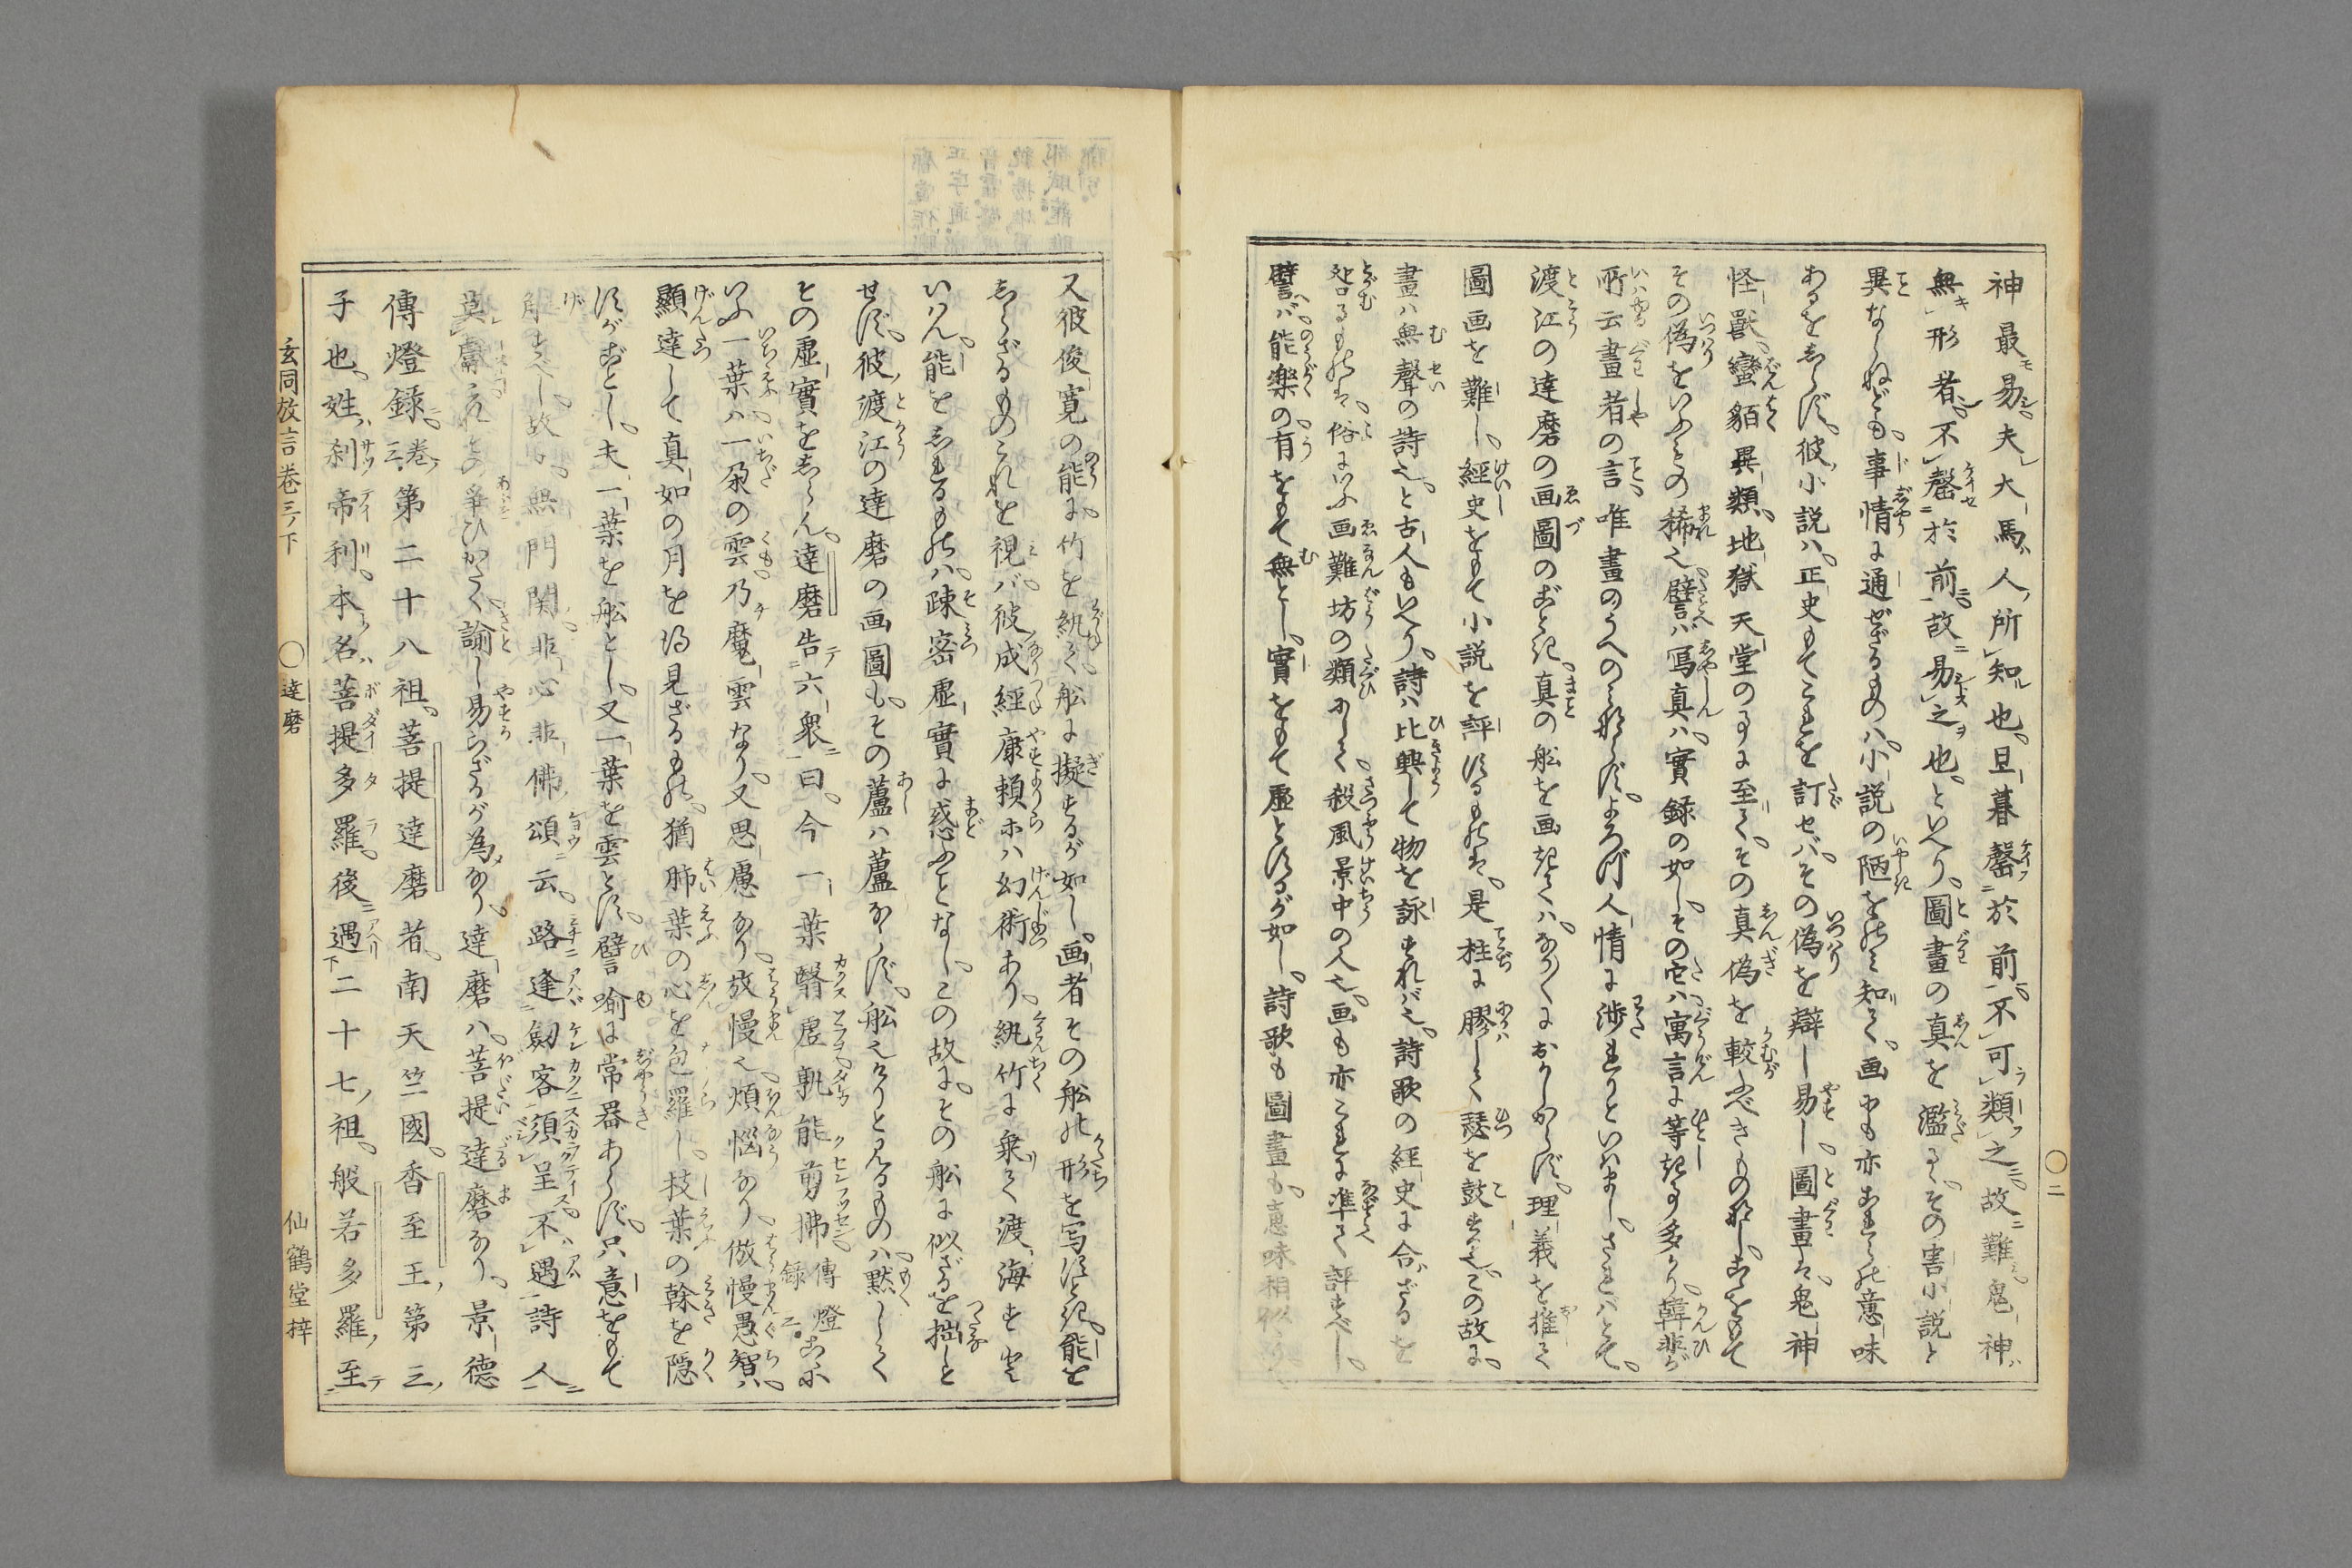 神最易夫犬馬人所知也旦暮罄於前不可類之故難鬼神
無形者不罄於前故易之也といへり圖畫の真を濫るゝその害小説と
異ならねども事情に通ぜざるものハ小説の陋をのミ知りて画にも亦これらの意味
あるをしらず彼小説ハ正史もてこれを訂せバその偽を辯し易し圖畫は鬼神
怪獸蠻貊異類地獄天堂の事に至りてその真偽を較ふべきもの那しこをもて
その偽をいふもの稀也譬ハ寫真ハ實録の如しその它ハ寓言に等しき多かり韓非が
所云畫者の言唯畫のうへのミならずよろづ人情に渉れりといはましされバとて
渡江の達磨の画圖のごとき真の船を画きてハなか〳〵におかしからず理義を推て
圖画を難し經史をもて小説を評するものは是柱に膠して瑟を鼓す也この故に
畫ハ無聲の詩也と古人もいへり詩ハ比興して物を詠ずれバ也詩歌の經史に合ざるを
咎るものは俗にいふ画難坊の類にして殺風景中の人也画も亦これに準て評すべし
譬バ能樂の有をもて無とし實をもて虚とするが如し詩歌も圖畫も意味相似
又彼俊寛の能に竹を紈て舩に擬するが如し画者その舩の形を写すとき能を
しらざるものこれを視バ彼成經康頼ホハ幻術あり紈竹に乗りて渡海すと
いはん能をしれるものハ疎密虚實に惑ふことなしこの故にその舩に似ざるを拙しと
せず彼渡江の達磨の画圖もその蘆ハ蘆ならず舩也けりと見るものハ黙して
その虚實をしらん達磨告六衆曰今一葉翳虚孰能剪拂傳燈録三こゝに
いふ一葉ハ一朶の雲乃魔雲なり又思慮なり放慢也煩惱なり傲慢愚智ハ
顯達して真如の月を得見ざるもの猶肺葉の心を包羅し技葉の幹を隠
すがごとし夫一葉を舩とし又一葉を雲とす譬喩に常器あらず只意をもて
解すべし故に無門関非心非佛頌云路逢劔客須呈不遇詩人
莫獻これその爭ひかたく諭し易らざるが為なり達磨ハ菩提達磨なり景德
傳燈録卷三第二十八祖菩提達磨者南天竺國香至王第三
子也姓刹帝利本名菩提多羅後遇二十七祖般若多羅至
玄同放言卷三ノ下
〇達磨
仙鶴堂梓
〇二